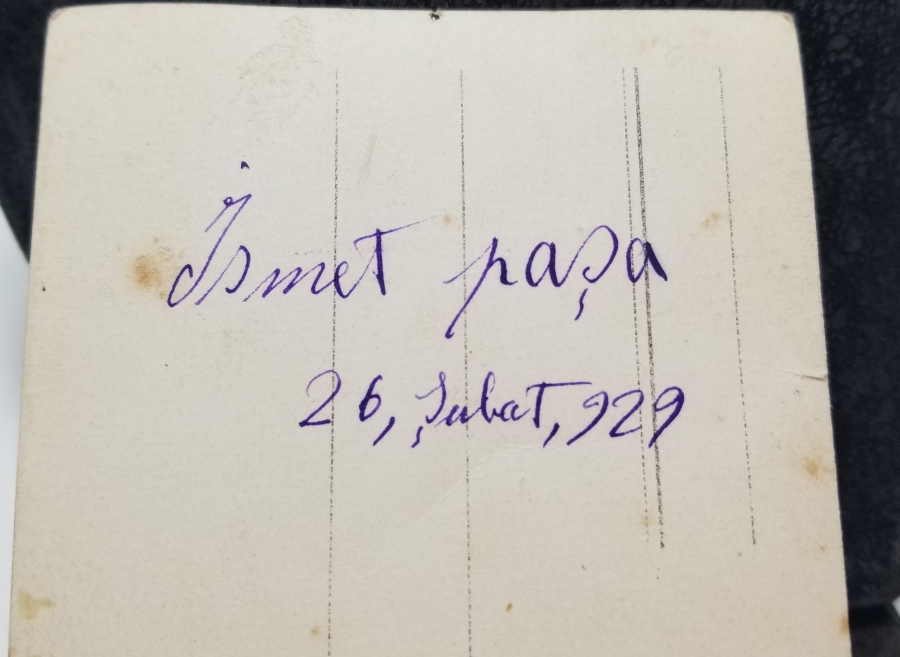 İsmet paşa
26, Şubat, 929